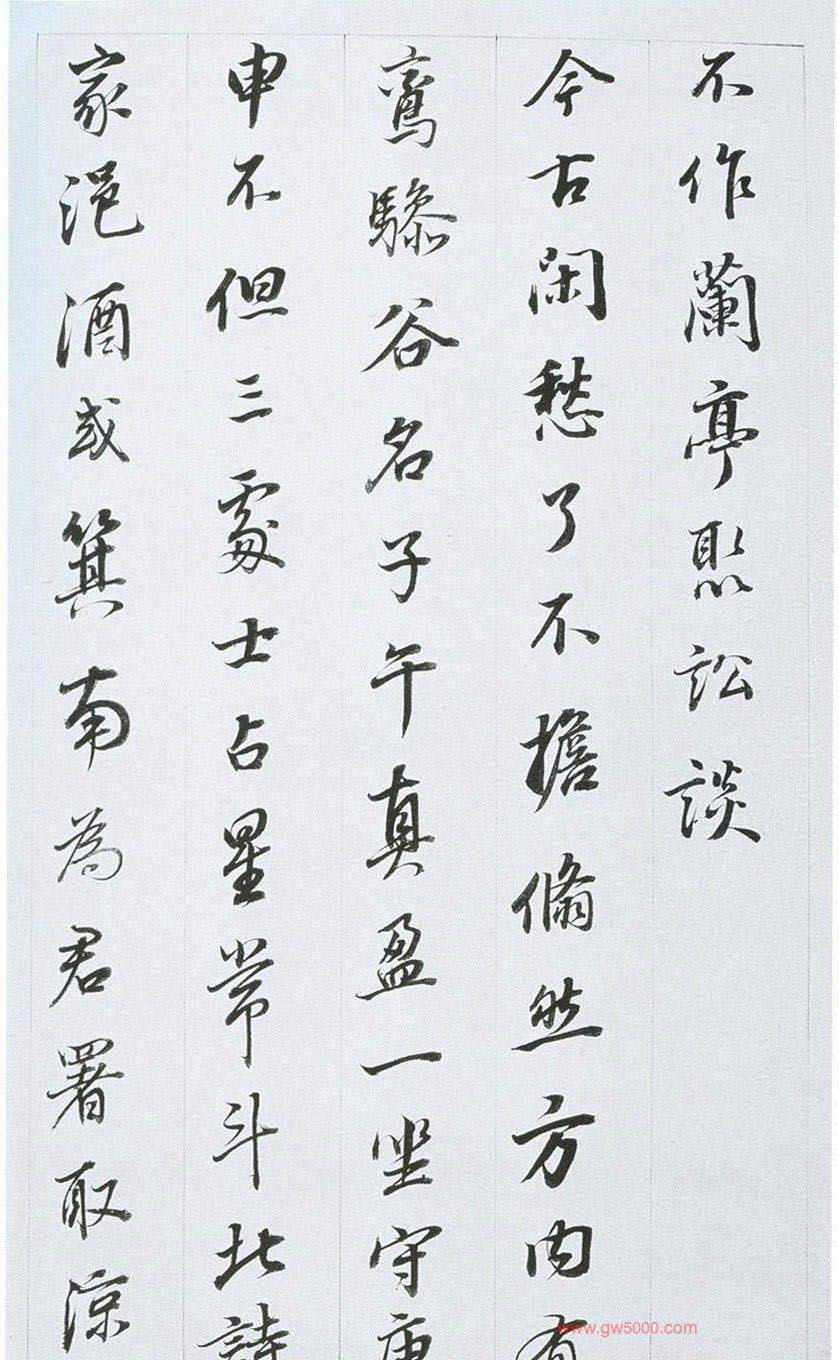 不作蘭亭聚訟談
今古閑愁了不擔翛然方内有
鸾驂谷名子午真盈一坐守庚
申不但三處士占星常斗北詩
家浥酒或箕南為君署取涼
www.gw5000.com